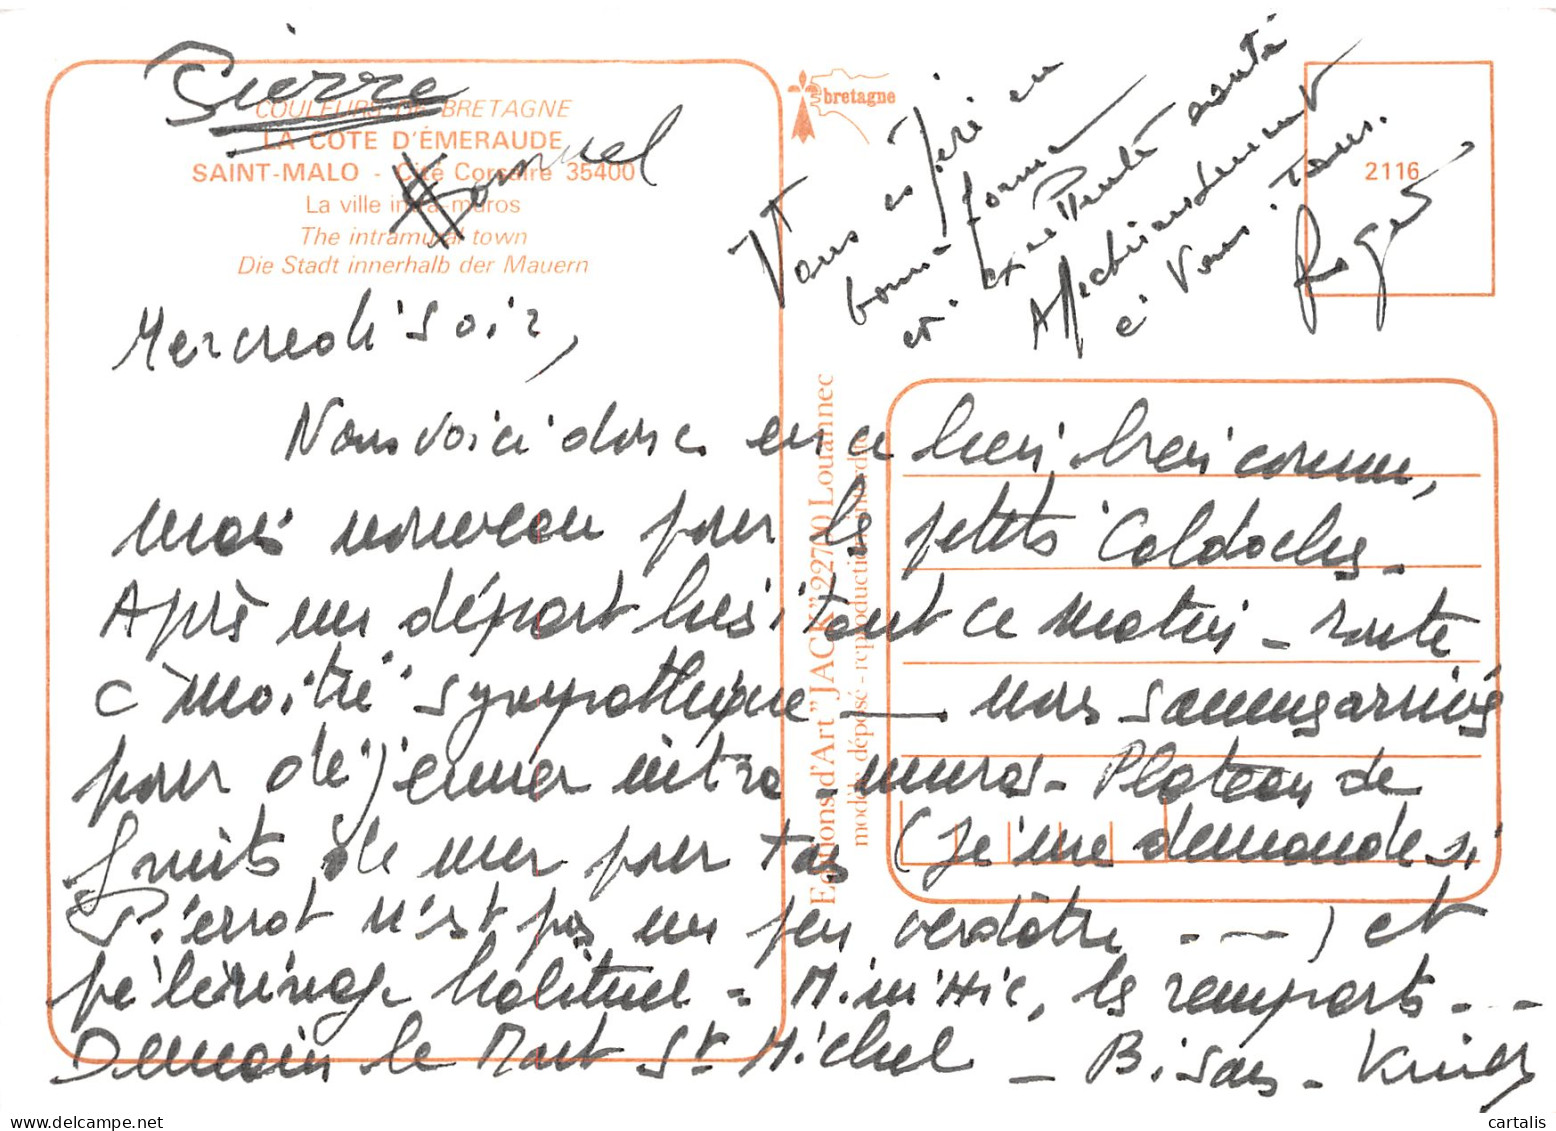 Pierre
COULEURS DE BRETAGNE
LA COTE D'ÉMERAUDE
SAINT-MALO - Cité Corsaire 35400
La ville intra-muros
The intramural town
Die Stadt innerhalb der Mauern
bretagne
2116
Vous espère en
bonne forme
et excellente santé
Affectueusement
à vous tous.
Roger
Mercredi soir,
Nous voici donc en ce lieu bien connu,
mais nouveau pour les petits Caldoches -
Après un départ hésitant ce matin - route
à moitié sympathique — nous sommes arrivés
pour déjeuner intra-muros - Plateau de
fruits de mer pour tous (je me demande si
Pierrot n'est pas un peu verdâtre ...) et
pèlerinage habituel = Minihic, les remparts ...
Demain le Mont St Michel - Bisous -
Editions d'Art "JACK" 22700 Louannec
modèle déposé - reproduction interdite
cartalis